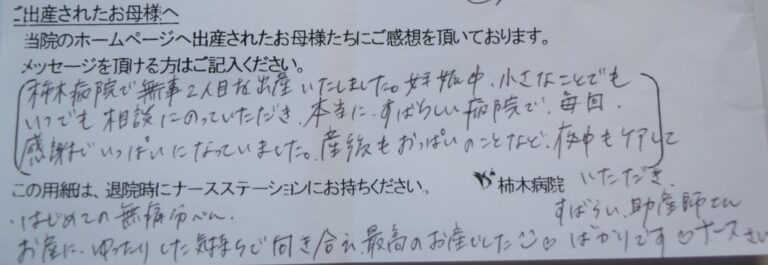 ご出産されたお母様へ
当院のホームページへ出産されたお母様たちにご感想を頂いております。
メッセージを頂ける方はご記入ください。
柿木病院で無事2人目を出産いたしました。妊娠中、小さなことでも
いつでも相談にのっていただき、本当に、すばらしい病院で、毎回、
感謝でいっぱいになっていました。産後もおっぱいのことなど、夜中もケアして
いただき、
この用紙は、退院時にナースステーションにお持ちください。 柿木病院
すばらしい、助産師さん
ばかりです♡ナースさん
・はじめての無痛分べん、
お産に、ゆったりした気持ちで向き合え、最高のお産でした☺♡